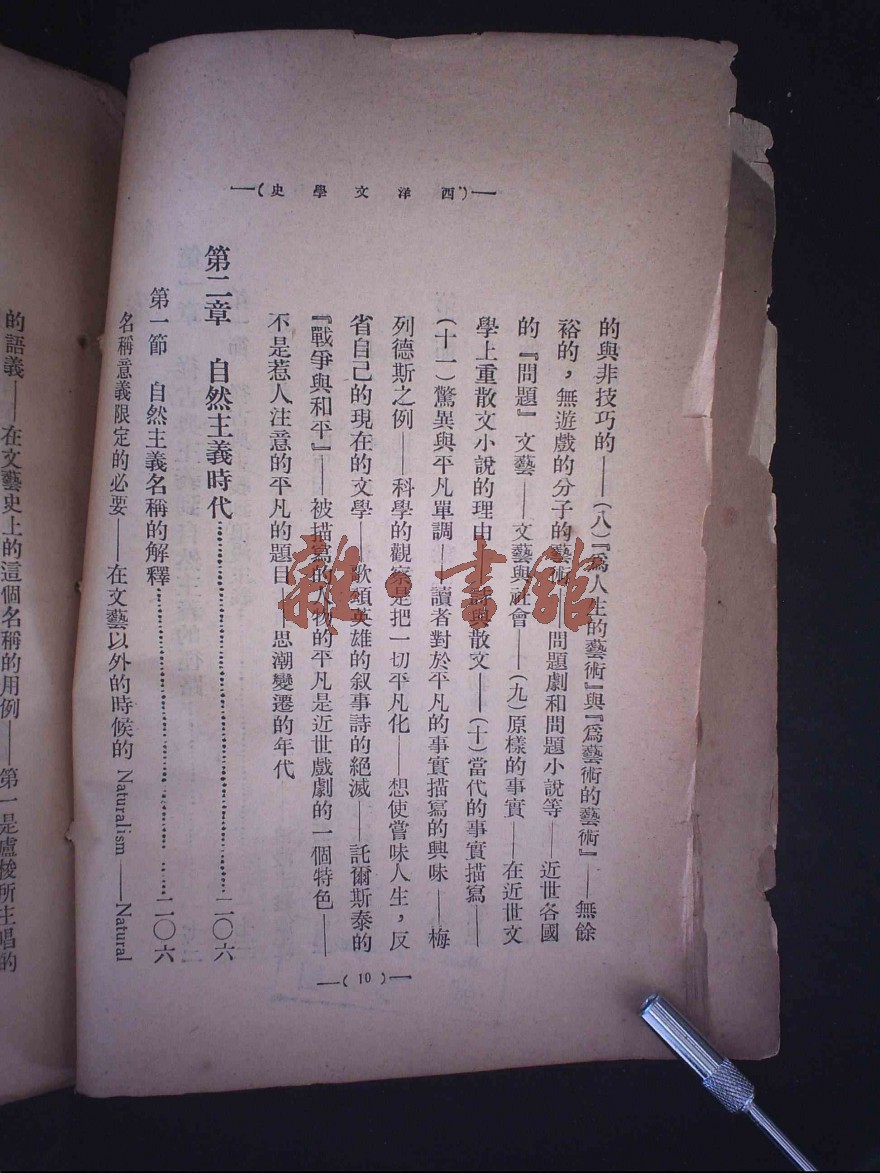 西洋文學史
的與非技巧的——(八)『爲人生的藝術』與『爲藝術的藝術』——無餘
裕的，無遊戲的分子的藝術——問題劇和問題小說等——近世各國
的『問題』文藝——文藝與社會——(九)原樣的事實——在近世文
學上重散文小說的理由——詩與散文——(十)當代的事實描寫——
(十一)驚異與平凡單調——讀者對於平凡的事實描寫的興味——梅
列德斯之例——科學的觀察是把一切平凡化——想使嘗味人生，反
省自己的現在的文學——歌頌英雄的叙事詩的絕滅——託爾斯泰的
『戰爭與和平』——被描寫的人物的平凡是近世戲劇的一個特色——
不是惹人注意的平凡的題目——思潮變遷的年代
第二章 自然主義時代…………二〇六
第一節 自然主義名稱的解釋…………二〇六
名稱意義限定的必要——在文藝以外的時候的 Naturalism ——Natural
——( 10 )——
的語義——在文藝史上的這個名稱的用例——第一是盧梭所主唱的
雜·書館